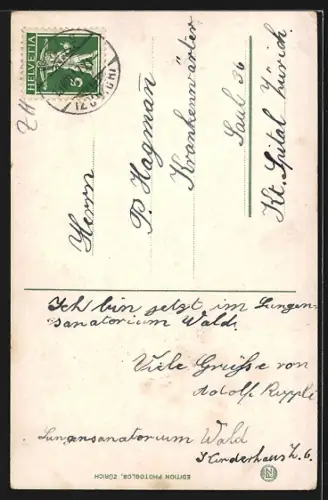 HELVETIA
5
ZH
Herrn
P. Hagman
Krankenwärter
Saal 36
Kt. Spital Zürich
Ich bin jetzt im Lungen-
sanatorium Wald.
Viele Grüsse von
Adolf Ruppli
Lungensanatorium Wald
Kinderhaus Z. 6.
EDITION PHOTOGLOB, ZÜRICH